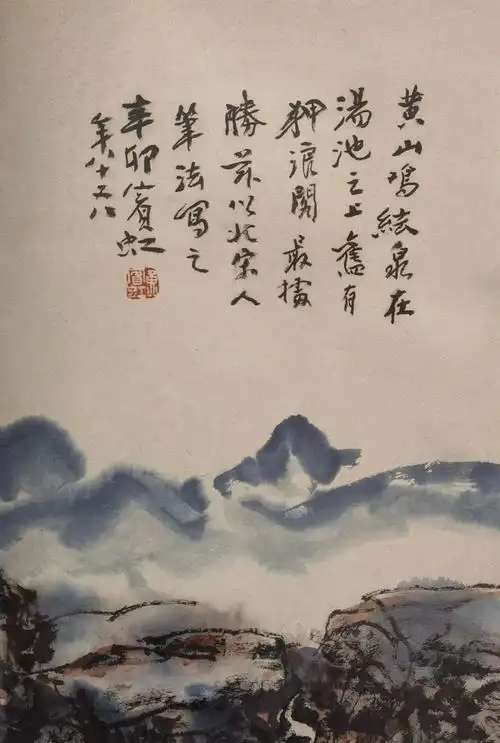 黄山鸣弦泉在
湯池之上舊有
狎浪閣最擅
勝茲以北宋人
筆法寫之
辛卯賓虹
年八十又八